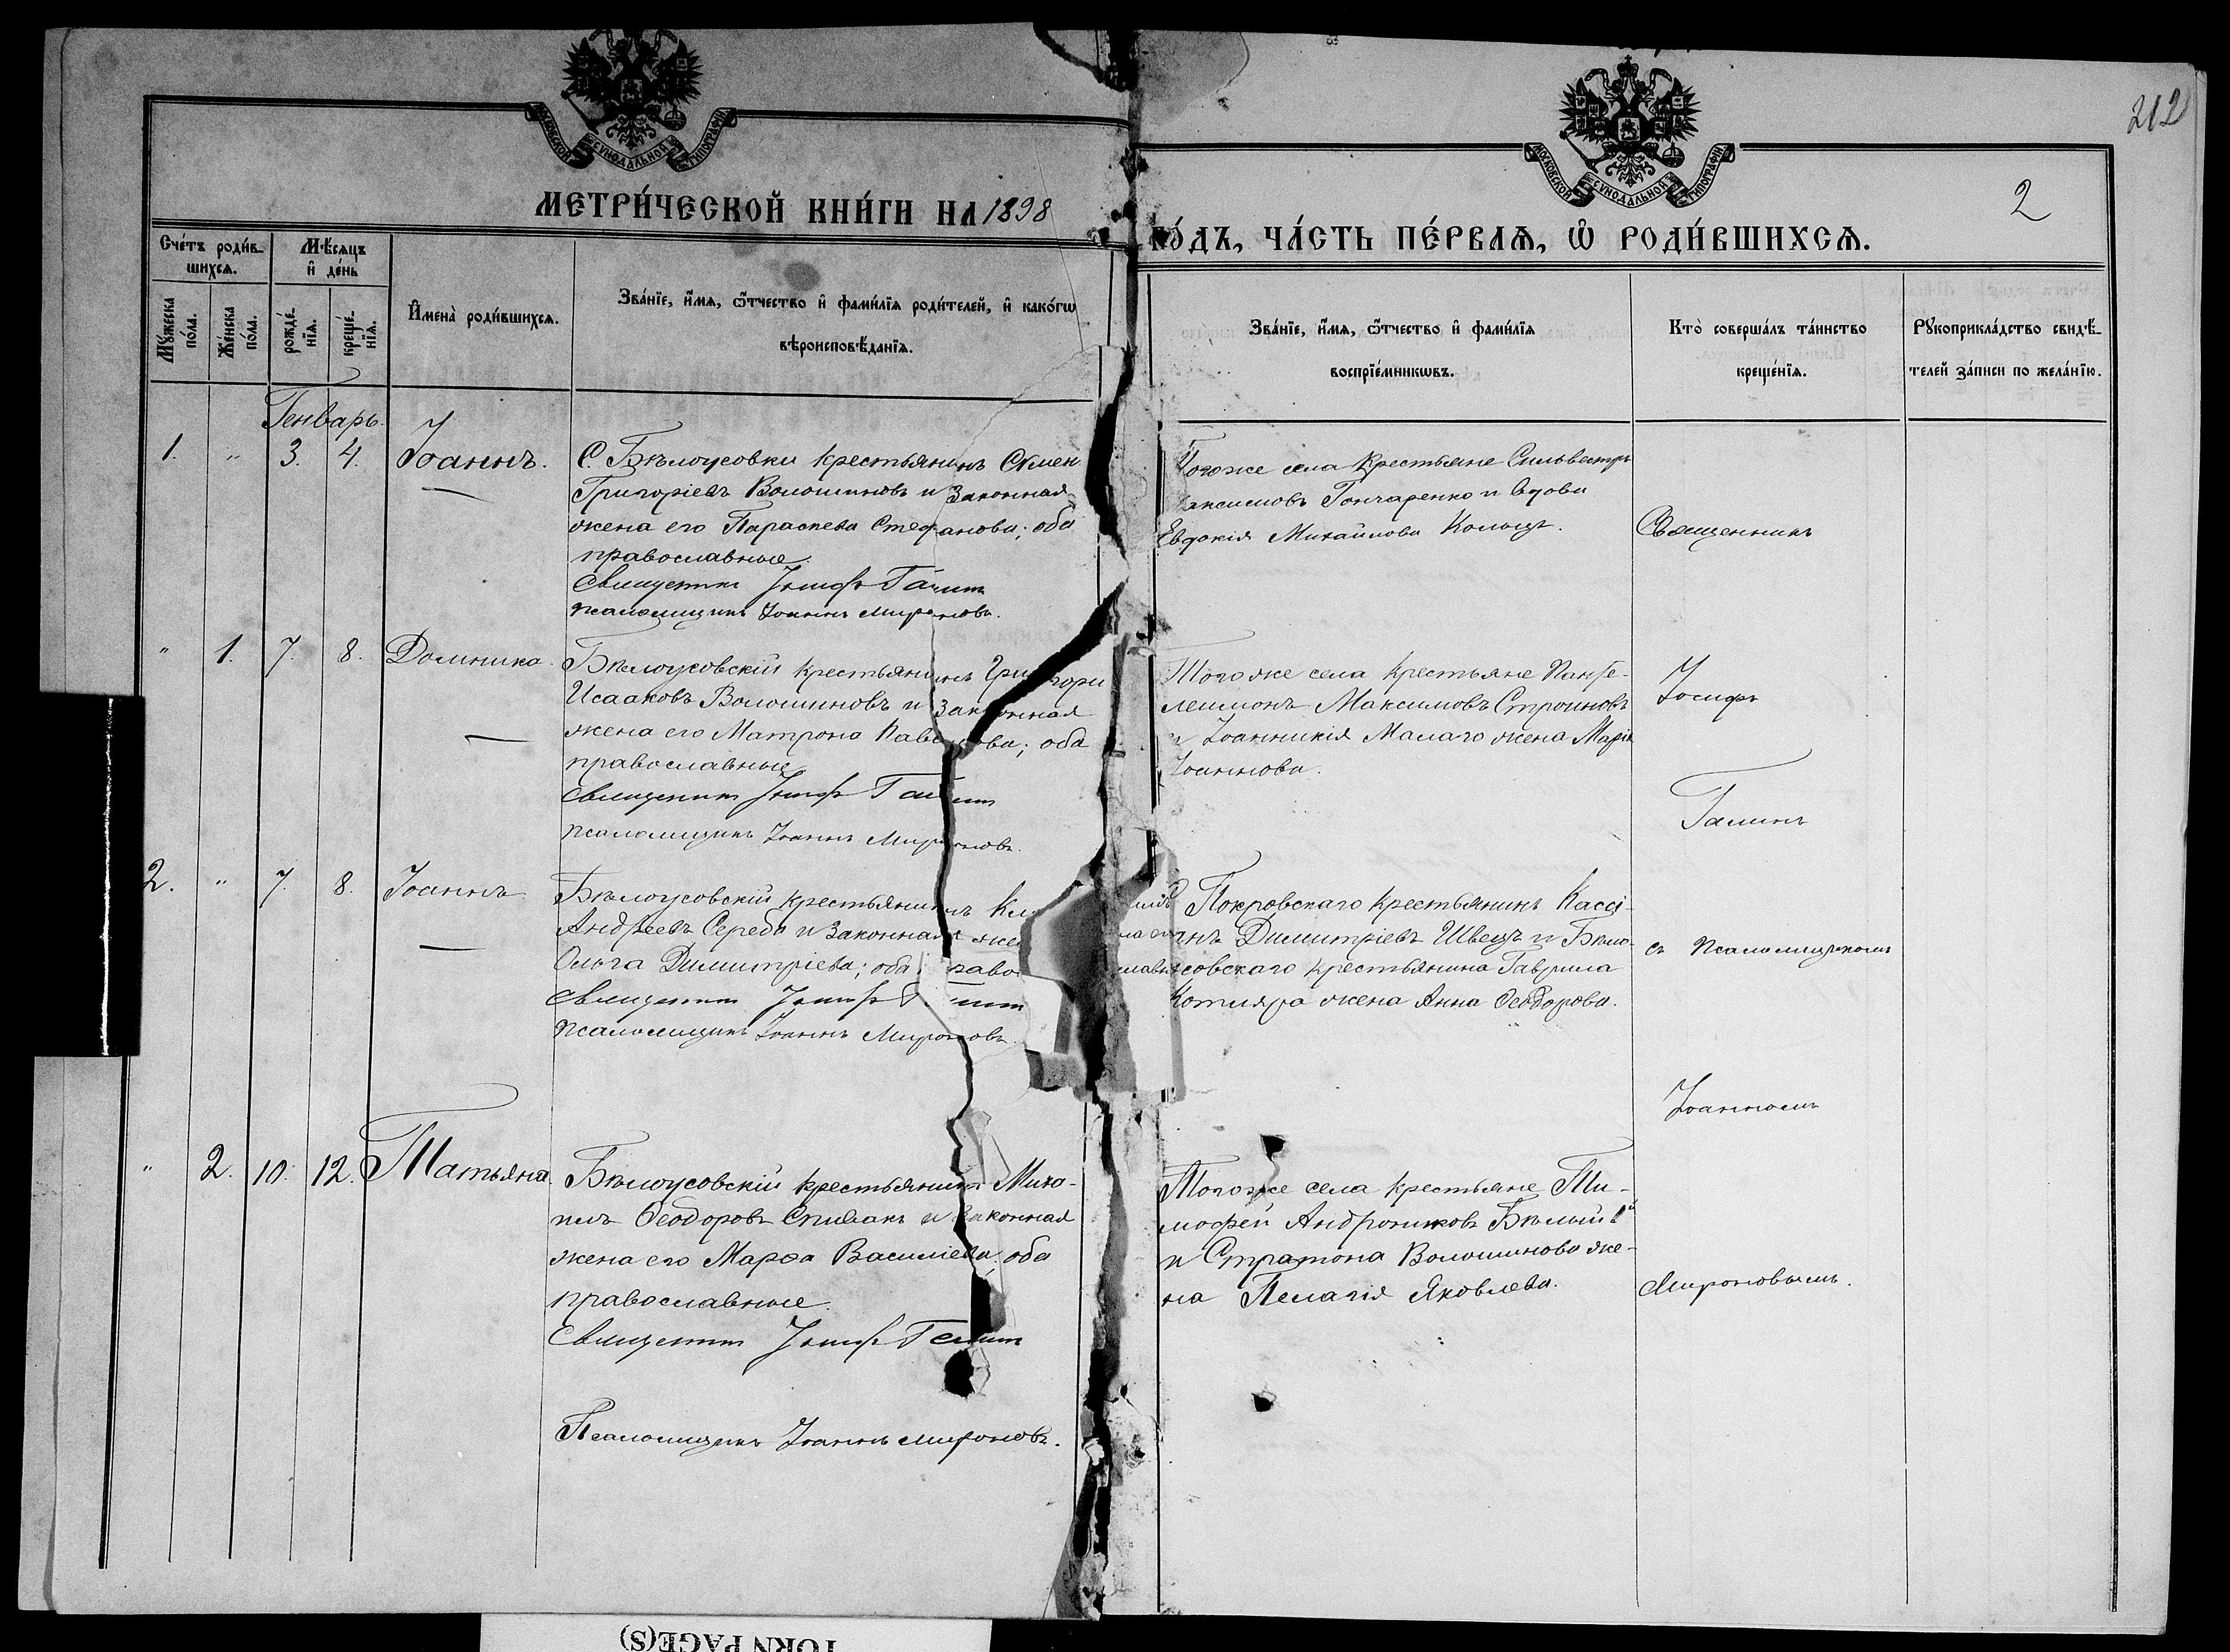 212
МОСКОВСКОЙ СѴНОДАЛЬНОЙ ТИПОГРАФІИ
МОСКОВСКОЙ СѴНОДАЛЬНОЙ ТИПОГРАФІИ
2
МЕТРИ́ЧЕСКОЙ КНИ́ГИ НА 1898
ГО́ДЪ, ЧА́СТЬ ПЕ́РВАЯ, Ѡ҆ РОДИ́ВШИХСЯ.
Сче́тъ роди́в-
шихся.
Мѣ́сяцъ
и҆ де́нь
Мꙋ́жеска
по́ла.
Же́нска
по́ла.
рожде́-
нїя.
креще́-
нїя.
И҆мена̀ роди́вшихся.
Зва́нїе, и҆́мя, ѻ҆́тчество и҆ фами́лїя роди́телей, и҆ како́гѡ
вѣроисповѣ́данїя.
Зва́нїе, и҆́мя, ѻ҆́тчество и҆ фами́лїя
воспрїе́мникѡвъ.
Кто̀ соверша́лъ та́инство
креще́нїя.
Рꙋкоприкла́дство свидѣ́-
телей за́писи по жела́нїю.
Генварь.
1. " 3. 4. Іоаннъ.
С. Бѣлоусовки крестьянинъ Симеонъ
Григоріевъ Волошиновъ и законная
жена его Параскева Стефанова; оба
православные.
Священникъ Іосифъ Галинъ
псаломщикъ Іоаннъ Мироновъ.
Тогоже села крестьяне Сильвестръ
Максимовъ Гончаренко и вдова
Евдокія Михайлова
Священникъ
" 1. 7. 8. Домника.
Бѣлоусовскій крестьянинъ Григорій
Исааковъ Волошиновъ и законная
жена его Матрона Павлова; оба
православные
Священникъ Іосифъ Галинъ
псаломщикъ Іоаннъ Мироновъ.
Тогоже села крестьяне Панте-
леимонъ Максимовъ Строиновъ
и Іоанникія Малаго жена Марія
Іоаннова.
Іосифъ
Галинъ
2. " 7. 8. Іоаннъ
Бѣлоусовскій крестьянинъ
Андреевъ Середа и законная жена
Ольга Димитріева; оба православн
Священникъ Іосифъ Галинъ
псаломщикъ Іоаннъ Мироновъ.
Покровскаго крестьянинъ Кассі-
анъ Димитріевъ Швецъ и Бѣло-
усовскаго крестьянина Гаврила
Котляра жена Анна Ѳеодорова.
съ псаломщикомъ
Іоанномъ
" 2. 10. 12. Татьяна.
Бѣлоусовскій крестьянинъ Миха-
илъ Ѳеодоровъ Спивакъ и законная
жена его Марѳа Василіева; оба
православные.
Священникъ Іосифъ Галинъ
Псаломщикъ Іоаннъ Мироновъ.
Тогоже села крестьяне Ти-
мофей Андрониковъ Бѣлый 1й
и Стратона Волошинова же-
на Пелагія Яковлева.
Мироновымъ.
TORN PAGE(S)